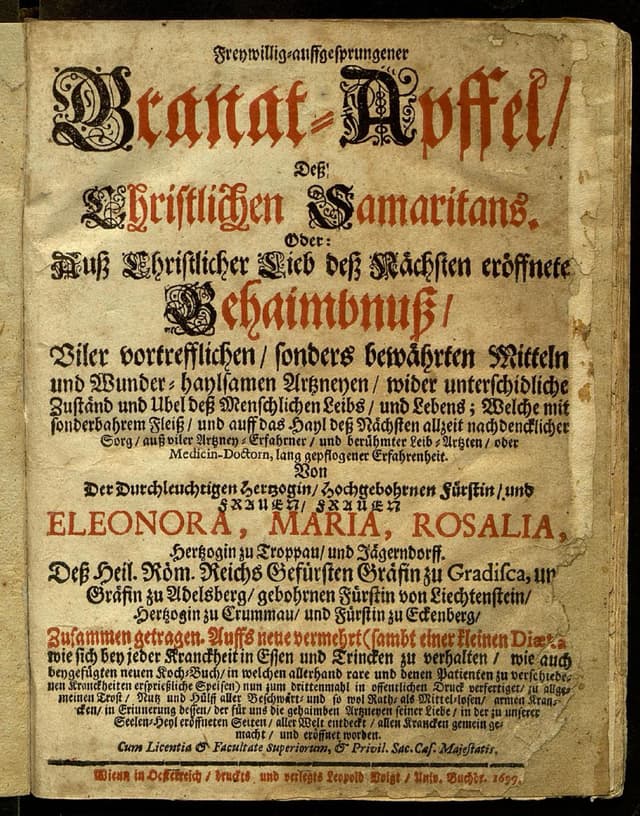 Freywillig-auffgesprungener
Granat-Apffel/
Deß
Christlichen Samaritans.
Oder:
Auß Christlicher Lieb deß Nächsten eröffnete
Gehaimbnuß/
Viler vortrefflichen/ sonders bewährten Mitteln
und Wunder-haylsamen Artzneyen/ wider unterschidliche
Zuständ und Ubel deß Menschlichen Leibs/ und Lebens; Welche mit
sonderbahrem Fleiß/ und auff das Hayl deß Nächsten allzeit nachdencklicher
Sorg/ auß viler Artzney-Erfahrner/ und berühmter Leib-Artzten/ oder
Medicin-Doctorn, lang gepflogener Erfahrenheit.
Von
Der Durchleuchtigen Hertzogin/ Hochgebohrnen Fürstin/ und
FRAUEN/ FRAUEN
ELEONORA, MARIA, ROSALIA,
Hertzogin zu Troppau/ und Jägerndorff.
Deß Heil. Röm. Reichs Gefürsten Gräfin zu Gradisca, un
Gräfin zu Adelsberg/ gebohrnen Fürstin von Liechtenstein/
Hertzogin zu Crummau/ und Fürstin zu Eckenberg/
Zusammen getragen. Auffs neue vermehrt (sambt einer kleinen Diæta
wie sich bey jeder Kranckheit in Essen und Trincken zu verhalten/ wie auch
beygefügten neuen Koch-Buch/ in welchen allerhand rare und denen Patienten zu verschiede-
nen Kranckheiten ersprießliche Speisen) nun zum drittenmahl in offentlichen Druck verfertiget/ zu allge-
meinen Trost/ Nutz und Hülff aller Beschwärt- und so wol Rath- als Mittel-losen/ armen Kran-
cken/ in Erinnerung dessen/ der für uns die gehaimben Artzneyen seiner Liebe/ in der zu unserer
Seelen-Heyl eröffneten Seiten/ aller Welt entdeckt/ allen Krancken gemein ge-
macht/ und eröffnet worden.
Cum Licentia & Facultate Superiorum, & Privil. Sac. Cæs. Majestatis.
Wienn in Oesterreich/ druckts und verlegts Leopold Voigt/ Univ. Buchdr. 1699.